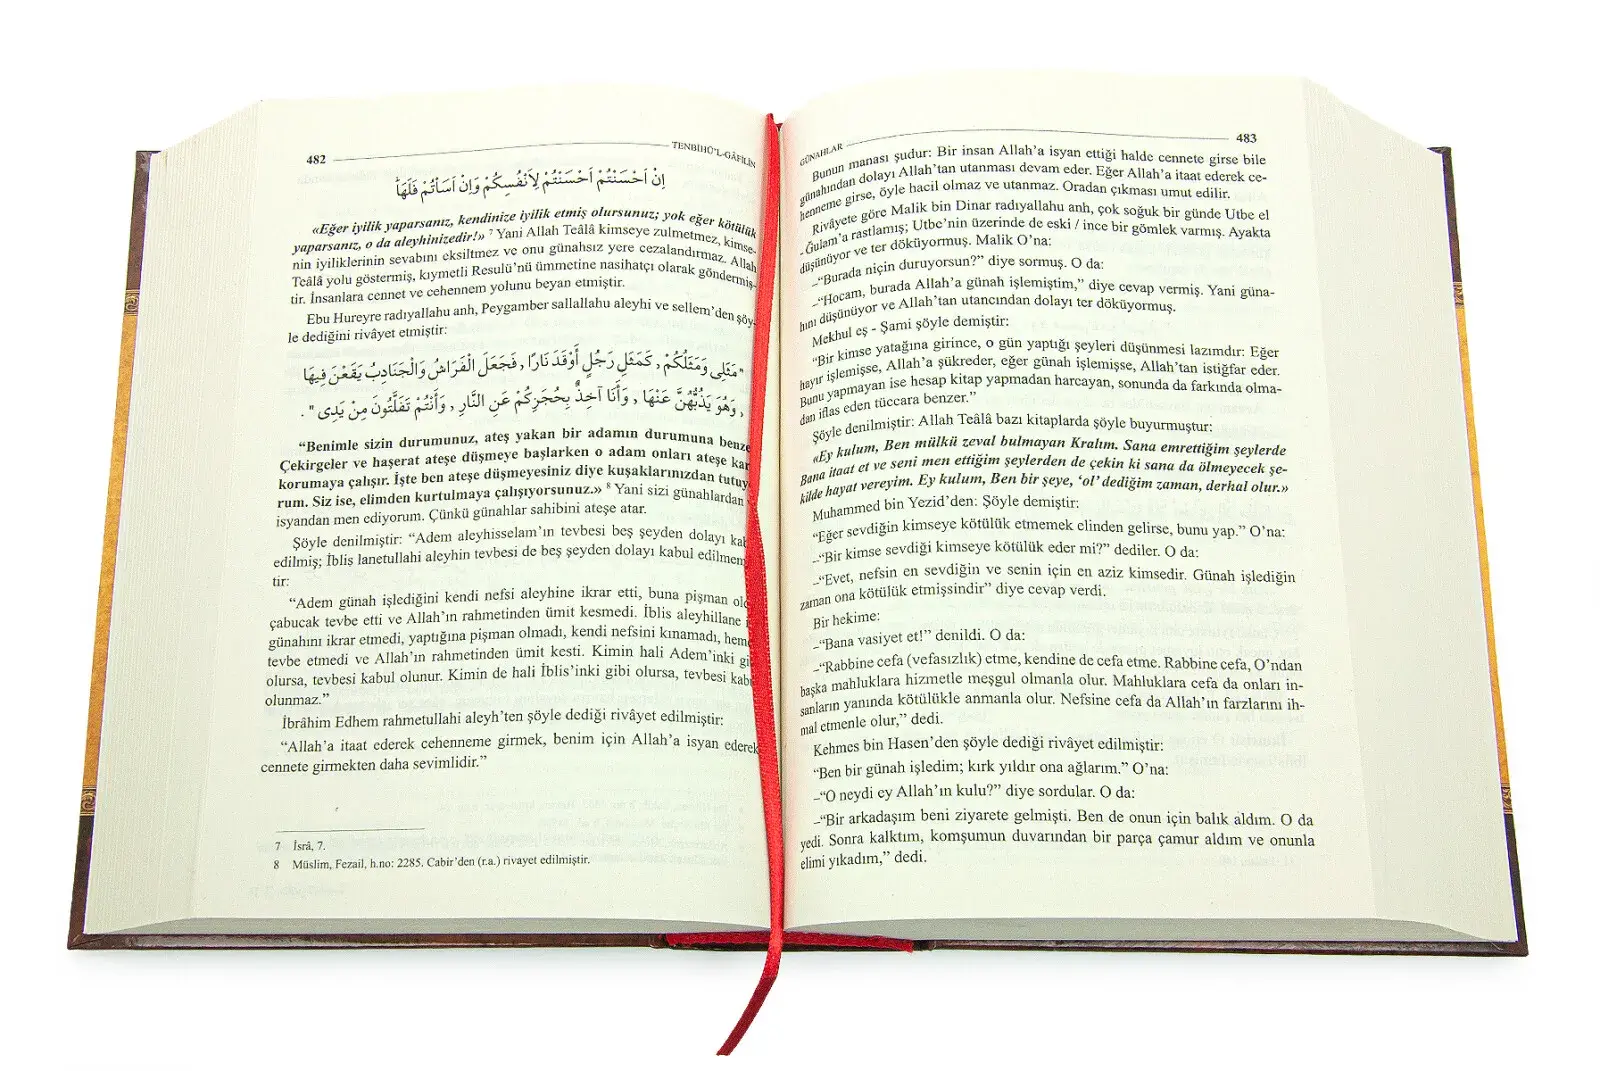 482 TENBİHÜ'L-GÂFİLÎN
اِنْ اَحْسَنْتُمْ اَحْسَنْتُمْ لِاَنْفُسِكُمْ وَاِنْ اَسَأْتُمْ فَلَهَا
«Eğer iyilik yaparsanız, kendinize iyilik etmiş olursunuz; yok eğer kötülük
yaparsanız, o da aleyhinizedir!» 7 Yani Allah Teâlâ kimseye zulmetmez, kimse-
nin iyiliklerinin sevabını eksiltmez ve onu günahsız yere cezalandırmaz. Allah
Teâlâ yolu göstermiş, kıymetli Resulü'nü ümmetine nasihatçı olarak göndermiş-
tir. İnsanlara cennet ve cehennem yolunu beyan etmiştir.
Ebu Hureyre radıyallahu anh, Peygamber sallallahu aleyhi ve sellem'den şöy-
le dediğini rivâyet etmiştir:
"مَثَلِى وَمَثَلُكُمْ , كَمَثَلِ رَجُلٍ أَوْقَدَ نَارًا , فَجَعَلَ الْفَرَاشُ وَالْجَنَادِبُ يَقَعْنَ فِيهَا
, وَهُوَ يَذُبُّهُنَّ عَنْهَا , وَأَنَا آخِذٌ بِحُجَزِكُمْ عَنِ النَّارِ , وَأَنْتُمْ تَفَلَّتُونَ مِنْ يَدِى " .
“Benimle sizin durumunuz, ateş yakan bir adamın durumuna benze
Çekirgeler ve haşerat ateşe düşmeye başlarken o adam onları ateşe kar
korumaya çalışır. İşte ben ateşe düşmeyesiniz diye kuşaklarınızdan tutuy
rum. Siz ise, elimden kurtulmaya çalışıyorsunuz.» 8 Yani sizi günahlardan
isyandan men ediyorum. Çünkü günahlar sahibini ateşe atar.
Şöyle denilmiştir: “Adem aleyhisselam'ın tevbesi beş şeyden dolayı kab
edilmiş; İblis lanetullahi aleyhin tevbesi de beş şeyden dolayı kabul edilmem
tir:
“Adem günah işlediğini kendi nefsi aleyhine ikrar etti, buna pişman old
çabucak tevbe etti ve Allah'ın rahmetinden ümit kesmedi. İblis aleyhillane i
günahını ikrar etmedi, yaptığına pişman olmadı, kendi nefsini kınamadı, heme
tevbe etmedi ve Allah'ın rahmetinden ümit kesti. Kimin hali Adem'inki gi
olursa, tevbesi kabul olunur. Kimin de hali İblis'inki gibi olursa, tevbesi kabu
olunmaz.”
İbrâhim Edhem rahmetullahi aleyh'ten şöyle dediği rivâyet edilmiştir:
“Allah'a itaat ederek cehenneme girmek, benim için Allah'a isyan ederek
cennete girmekten daha sevimlidir.”
7 İsrâ, 7.
8 Müslim, Fezail, h.no: 2285. Cabir'den (r.a.) rivayet edilmiştir.
GÜNAHLAR 483
Bunun manası şudur: Bir insan Allah'a isyan ettiği halde cennete girse bile
günahından dolayı Allah'tan utanması devam eder. Eğer Allah'a itaat ederek ce-
henneme girse, öyle hacil olmaz ve utanmaz. Oradan çıkması umut edilir.
Rivâyete göre Malik bin Dinar radıyallahu anh, çok soğuk bir günde Utbe el
- Ğulam'a rastlamış; Utbe'nin üzerinde de eski / ince bir gömlek varmış. Ayakta
düşünüyor ve ter döküyormuş. Malik O'na:
–“Burada niçin duruyorsun?” diye sormuş. O da:
–“Hocam, burada Allah'a günah işlemiştim,” diye cevap vermiş. Yani güna-
hını düşünüyor ve Allah'tan utancından dolayı ter döküyormuş.
Mekhul eş - Şami şöyle demiştir:
“Bir kimse yatağına girince, o gün yaptığı şeyleri düşünmesi lazımdır: Eğer
hayır işlemişse, Allah'a şükreder, eğer günah işlemişse, Allah'tan istiğfar eder.
Bunu yapmayan ise hesap kitap yapmadan harcayan, sonunda da farkında olma-
dan iflas eden tüccara benzer.”
Şöyle denilmiştir: Allah Teâlâ bazı kitaplarda şöyle buyurmuştur:
«Ey kulum, Ben mülkü zeval bulmayan Kralım. Sana emrettiğim şeylerde
Bana itaat et ve seni men ettiğim şeylerden de çekin ki sana da ölmeyecek şe-
kilde hayat vereyim. Ey kulum, Ben bir şeye, ‘ol’ dediğim zaman, derhal olur.»
Muhammed bin Yezid'den: Şöyle demiştir:
“Eğer sevdiğin kimseye kötülük etmemek elinden gelirse, bunu yap.” O'na:
–“Bir kimse sevdiği kimseye kötülük eder mi?” dediler. O da:
–“Evet, nefsin en sevdiğin ve senin için en aziz kimsedir. Günah işlediğin
zaman ona kötülük etmişsindir” diye cevap verdi.
Bir hekime:
–“Bana vasiyet et!” denildi. O da:
–“Rabbine cefa (vefasızlık) etme, kendine de cefa etme. Rabbine cefa, O'ndan
başka mahluklara hizmetle meşgul olmanla olur. Mahluklara cefa da onları in-
sanların yanında kötülükle anmanla olur. Nefsine cefa da Allah'ın farzlarını ih-
mal etmenle olur,” dedi.
Kehmes bin Hasen'den şöyle dediği rivâyet edilmiştir:
“Ben bir günah işledim; kırk yıldır ona ağlarım.” O'na:
–“O neydi ey Allah'ın kulu?” diye sordular. O da:
–“Bir arkadaşım beni ziyarete gelmişti. Ben de onun için balık aldım. O da
yedi. Sonra kalktım, komşumun duvarından bir parça çamur aldım ve onunla
elimi yıkadım,” dedi.